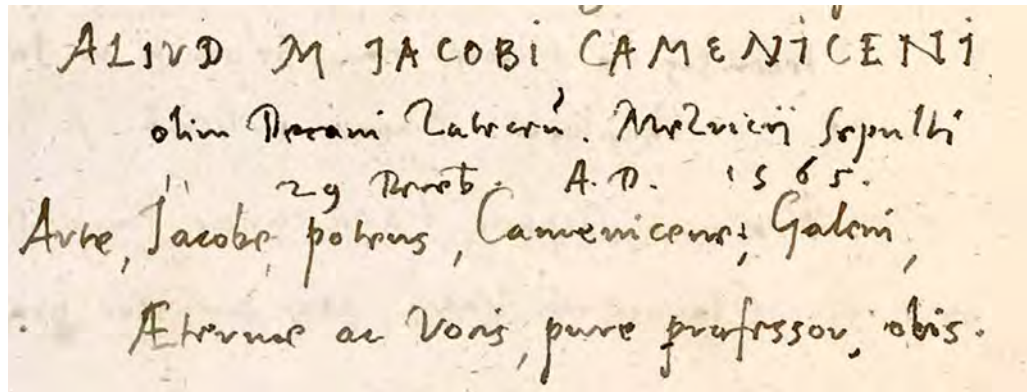 ALIVD M JACOBI CAMENICENI
olim Decani Zatecen̄. Melnicij Sepulti
29 Decēb. A.D. 1565.
Arte, Jacobe potens, Camenicene, Galeni,
Æternæ ac Vocis, pure professor, obis.